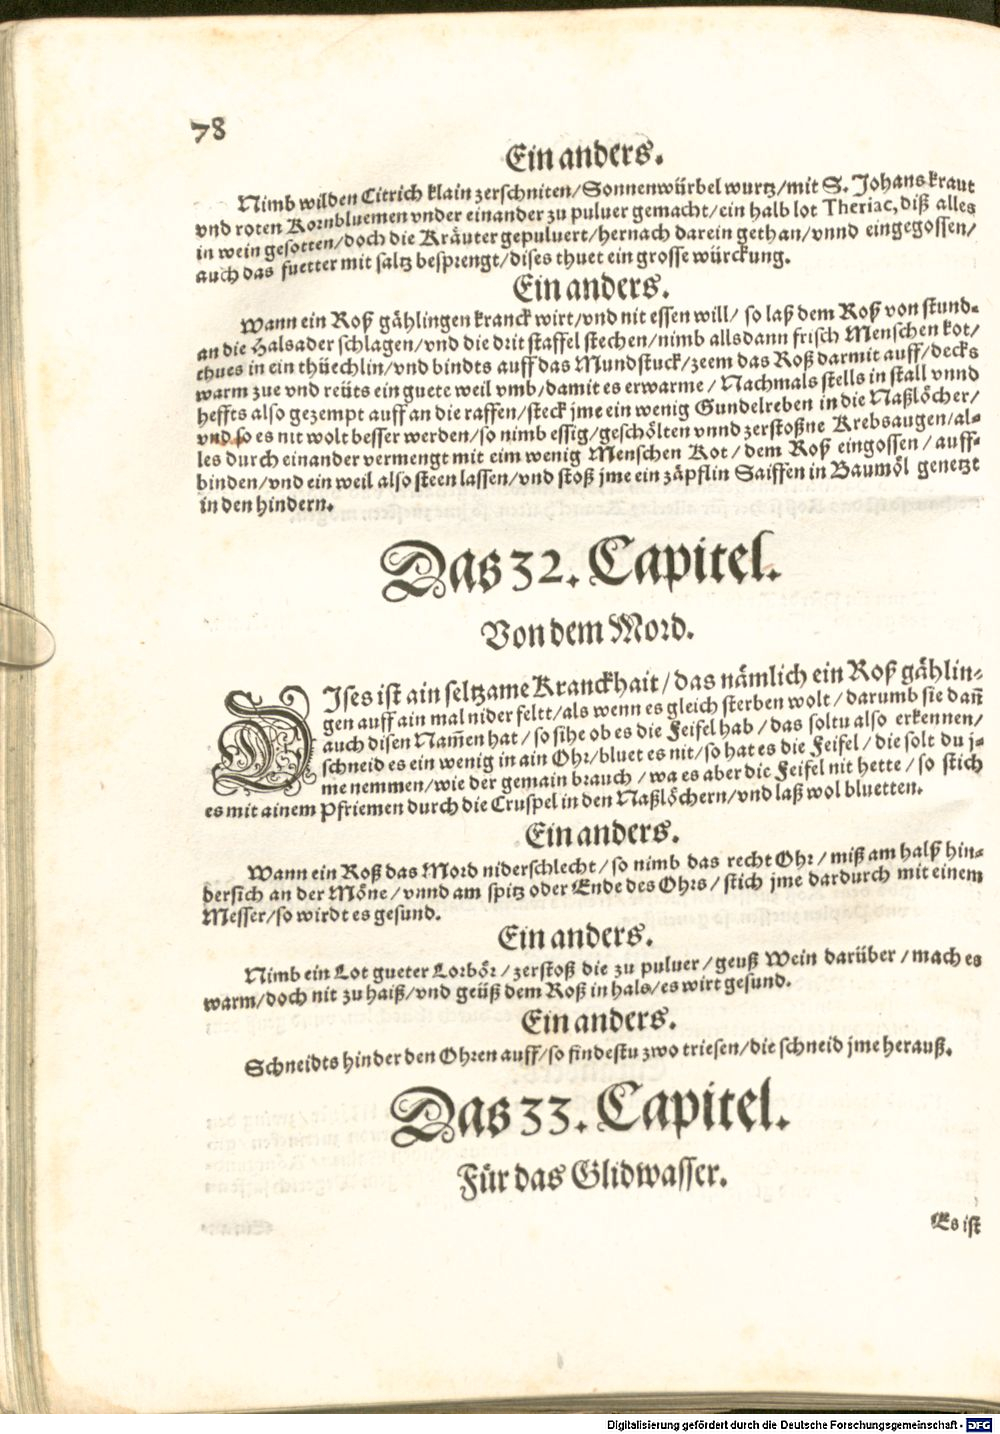 78
Ein anders.
Nimb wilden Citrich klain zerschniten/Sonnenwürbel wurtz/mit S. Johans kraut
vnd roten Kornbluemen vnder einander zu puluer gemacht/ein halb lot Theriac, diß alles
in wein gesotten/doch die Kräuter gepuluert/hernach darein gethan/vnnd eingegossen/
auch das fuetter mit saltz besprengt/dises thuet ein grosse würckung.
Ein anders.
Wann ein Roß gählingen kranck wirt/vnd nit essen will/ so laß dem Roß von stund-
an die Halsader schlagen/vnd die drit staffel stechen/nimb allsdann frisch Menschen kot/
thues in ein thüechlin/vnd bindts auff das Mundstuck/zeem das Roß darmit auff/decks
warm zue vnd reüts ein guete weil vmb/damit es erwarme/ Nachmals stells in stall vnnd
heffts also gezempt auff an die raffen/steck jme ein wenig Gundelreben in die Naßlöcher/
vnd so es nit wolt besser werden/so nimb essig/geschölten vnnd zerstoßne Krebsaugen/al-
les durch einander vermengt mit eim wenig Menschen Kot/ dem Roß eingossen / auff-
binden/vnd ein weil also steen lassen/vnd stoß jme ein zäpflin Saiffen in Baumöl genetzt
in den hindern.
Das 32. Capitel.
Von dem Mord.
DIses ist ain seltzame Kranckhait/das nämlich ein Roß gählin-
gen auff ain mal nider feltt/als wenn es gleich sterben wolt / darumb sie dañ
auch disen Nam̃en hat / so sihe ob es die Feifel hab / das soltu also erkennen/
schneid es ein wenig in ain Ohr/bluet es nit/so hat es die Feifel / die solt du j-
me nemmen/wie der gemain brauch / wa es aber die Feifel nit hette / so stich
es mit ainem Pfriemen durch die Cruspel in den Naßlöchern/vnd laß wol bluetten.
Ein anders.
Wann ein Roß das Mord niderschlecht/ so nimb das recht Ohr / miß am halß hin-
dersich an der Möne/vnnd am spitz oder Ende des Ohrs/ stich jme dardurch mit einem
Messer/so wirdt es gesund.
Ein anders.
Nimb ein Lot gueter Lorbör/ zerstoß die zu puluer/geuß Wein darüber / mach es
warm/doch nit zu haiß/vnd geüß dem Roß in hals/es wirt gesund.
Ein anders.
Schneidts hinder den Ohren auff/so findestu zwo triesen/die schneid jme herauß.
Das 33. Capitel.
Für das Glidwasser.
Es ist
Digitalisierung gefördert durch die Deutsche Forschungsgemeinschaft - DFG